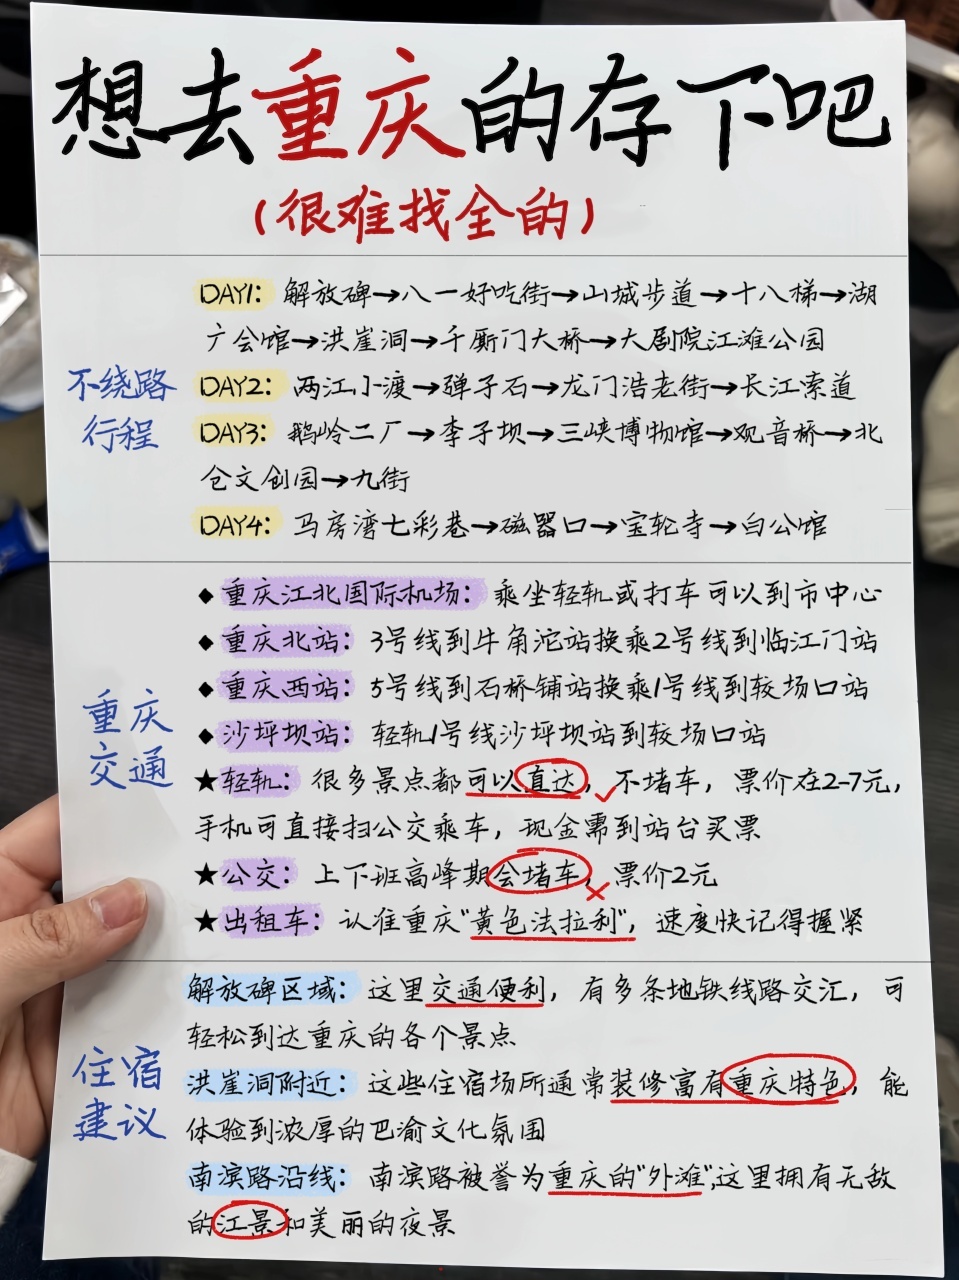 想去重庆的存下吧
(很难找全的)
不绕路
行程
DAY1: 解放碑→八一好吃街→山城步道→十八梯→湖
广会馆→洪崖洞→千厮门大桥→大剧院江滩公园
DAY2: 两江小渡→弹子石→龙门浩老街→长江索道
DAY3: 鹅岭二厂→李子坝→三峡博物馆→观音桥→北
仓文创园→九街
DAY4: 马房湾七彩巷→磁器口→宝轮寺→白公馆
重庆
交通
◆重庆江北国际机场: 乘坐轻轨或打车可以到市中心
◆重庆北站: 3号线到牛角沱站换乘2号线到临江门站
◆重庆西站: 5号线到石桥铺站换乘1号线到较场口站
◆沙坪坝站: 轻轨1号线沙坪坝站到较场口站
★轻轨: 很多景点都可以直达, 不堵车, 票价在2-7元,
手机可直接扫公交乘车, 现金需到站台买票
★公交: 上下班高峰期会堵车, 票价2元
★出租车: 认准重庆"黄色法拉利", 速度快记得握紧
住宿
建议
解放碑区域: 这里交通便利, 有多条地铁线路交汇, 可
轻松到达重庆的各个景点
洪崖洞附近: 这些住宿场所通常装修富有重庆特色, 能
体验到浓厚的巴渝文化氛围
南滨路沿线: 南滨路被誉为重庆的"外滩",这里拥有无敌
的江景和美丽的夜景